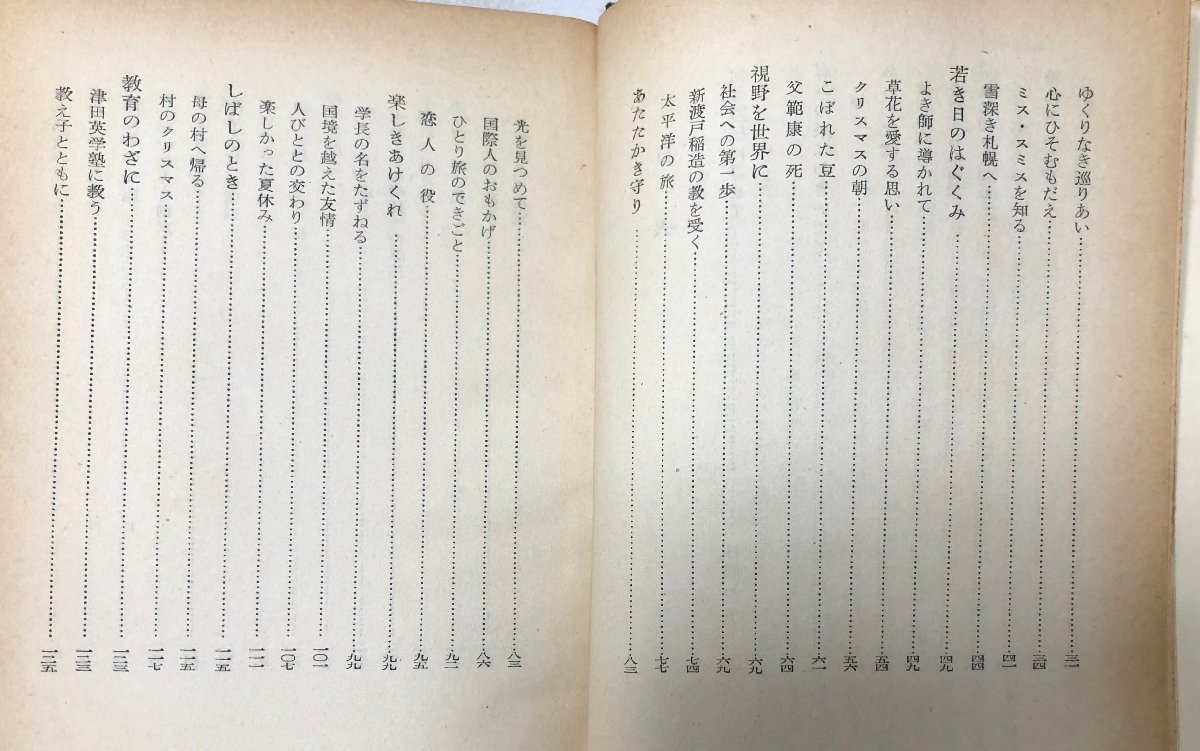 ゆくりなき巡りあい……三一
心にひそむもだえ……三四
ミス・スミスを知る……四一
雪深き札幌へ……四四
若き日のはぐくみ……四九
よき師に導かれて……四九
草花を愛する思い……五四
クリスマスの朝……五六
こぼれた豆……六一
父範康の死……六四
視野を世界に……六九
社会への第一歩……六九
新渡戸稲造の教を受く……七四
太平洋の旅……七七
あたたかき守り……八三
光を見つめて……八三
国際人のおもかげ……八六
ひとり旅のできごと……九二
恋人の役……九五
楽しきあけくれ……九九
学長の名をたずねる……九九
国境を越えた友情……一〇一
人びととの交わり……一〇七
楽しかった夏休み……一一一
しばしのとき……一一五
母の村へ帰る……一一五
村のクリスマス……一一七
教育のわざに……一二三
津田英学塾に教う……一二三
教え子とともに……一二五